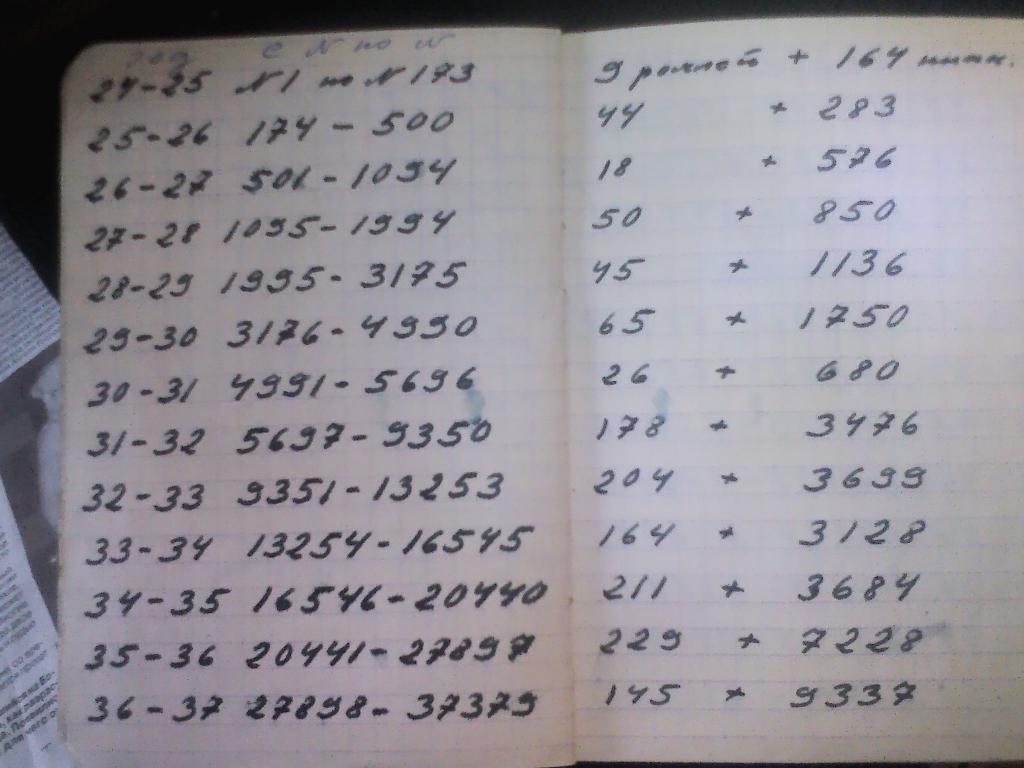 год с N по N
24-25 N1 по N 173 9 роялей + 164 пиан.
25-26 174 - 500 44 + 283
26-27 501 - 1094 18 + 576
27-28 1095 - 1994 50 + 850
28-29 1995 - 3175 45 + 1136
29-30 3176 - 4990 65 + 1750
30-31 4991 - 5696 26 + 680
31-32 5697 - 9350 178 + 3476
32-33 9351 - 13253 204 + 3699
33-34 13254 - 16545 164 + 3128
34-35 16546 - 20440 211 + 3684
35-36 20441 - 27897 229 + 7228
36-37 27898 - 37379 145 + 9337